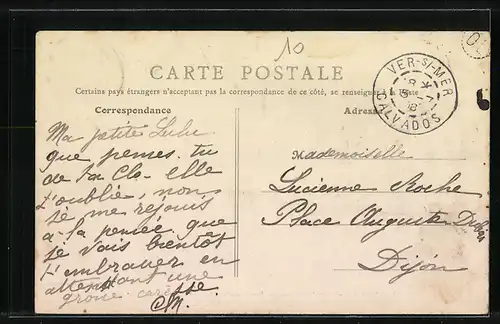 10
CARTE POSTALE
Certains pays étrangers n'acceptant pas la correspondance de ce côté, se renseigner à la Poste
Correspondance
Adresse
VER-S/-MER
CALVADOS
Ma petite
que penses-tu
de ta Clo- elle
t'oublie, non
je me rejouis
a la pensée que
je vais bientôt
t'embrasser en
attendant une
grosse caresse
CM.
Mademoiselle
Lucienne Roche
Place Auguste Dubois
Dijon